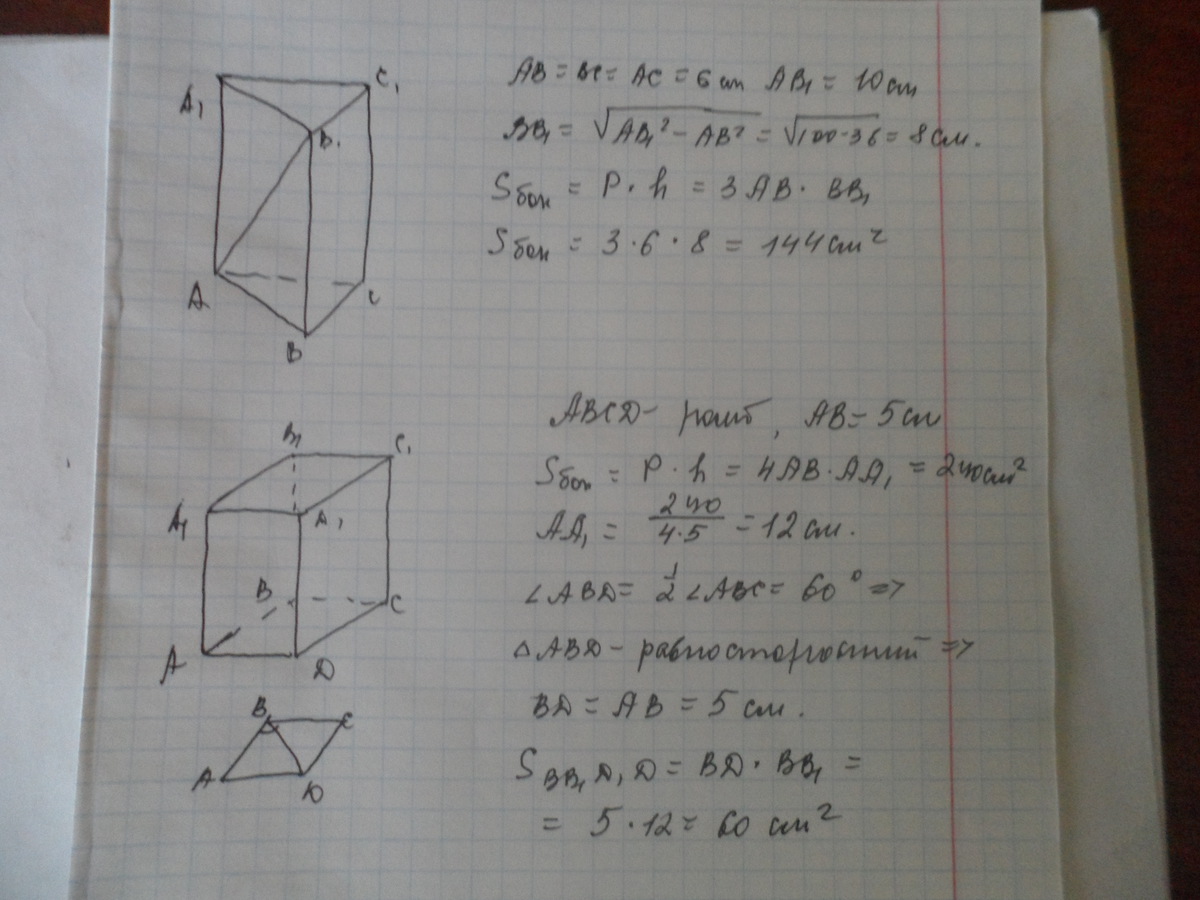 A₁ C₁ B₁
A C B
AB = BC = AC = 6 см AB₁ = 10 см
BB₁ = √AB₁² - AB² = √100-36 = 8 см.
Sбок = P · h = 3AB · BB₁
Sбок = 3 · 6 · 8 = 144 см²
B₁ C₁
A₁ D₁
B C
A D
B C
A D
ABCD - ромб, AB = 5 см
Sбок = P · h = 4AB · AA₁ = 240 см²
AA₁ = 240/4·5 = 12 см.
∠ABD = 1/2 ∠ABC = 60° =>
△ABD - равносторонний =>
BD = AB = 5 см.
S BB₁D₁D = BD · BB₁ =
= 5 · 12 = 60 см²